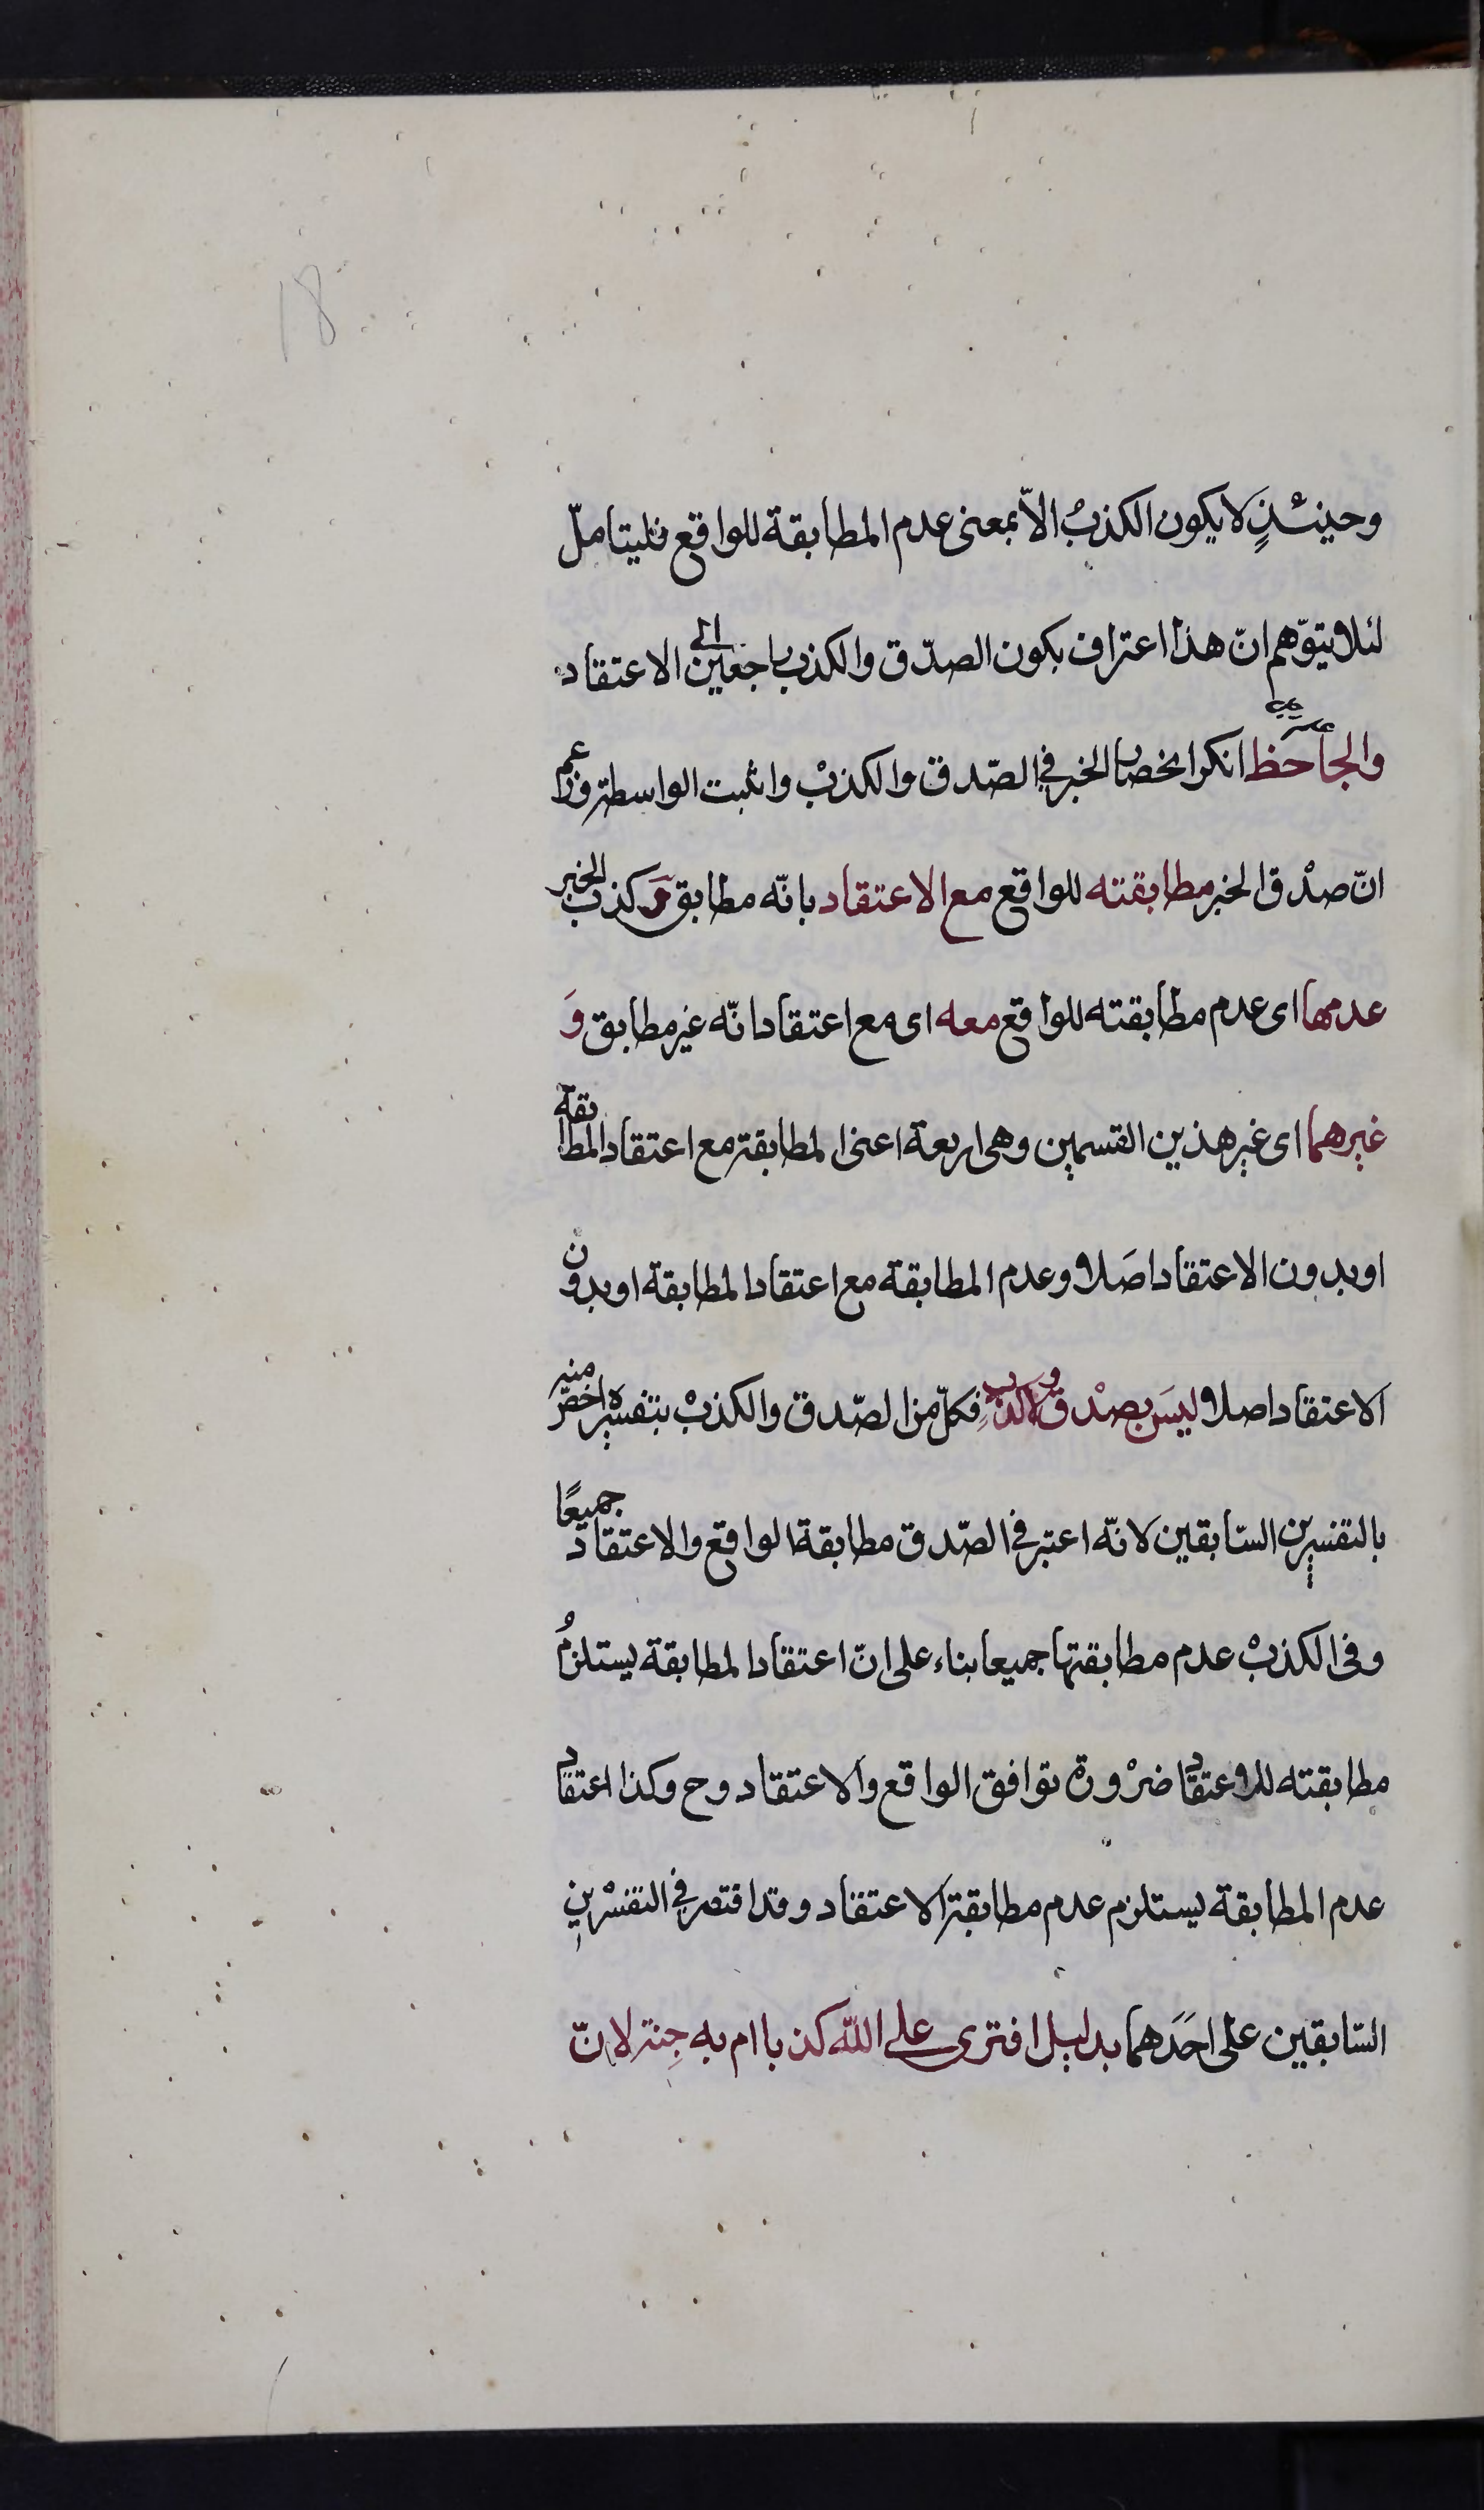 18
وحينئذٍ لا يكون الكذبْ الاّ بمعنى عدم المطابقة للواقع فليتامّل
لئلا يتوّهم انّ هذا اعتراف بكون الصدّق والكذب راجعين الى الاعتقاد
والجاحَظ انكر انحصار الخبر في الصّدق والكذبْ واثبت الواسطة وزعم
انّ صدْق الخبر مطابقته للواقع مع الاعتقاد بانّه مطابق وَ كذب الخبر
عدمها اى عدم مطابقته للواقع معه اى مع اعتقاد انّه غير مطابق وَ
غيرهما اى غير هذين القسمين وهى اربعة اعنى المطابقة مع اعتقاد المطابقة
او بدون الاعتقاد اصَلا وعدم المطابقة مع اعتقاد المطابقة او بدون
الاعتقاد اصلا ليسَ بصدْق ولا كذب فكلّ من الصّدق والكذبْ بتفسيره اخصّ منه
بالتفسيرين السّابقين لانّه اعتبر في الصّدق مطابقة الواقع والاعتقاد جميعًا
وفى الكذبْ عدم مطابقتها جميعا بناء على انّ اعتقاد المطابقة يستلزمُ
مطابقته للاعتقاد ضرْورة توافق الواقع والاعتقاد وح وكذا اعتقاد
عدم المطابقة يستلزم عدم مطابقة الاعتقاد وقد اقتصر في التفسْرين
السّابقين على احَدَهما بدليل افترى على اللّه كذبا ام به جِنة لانّ